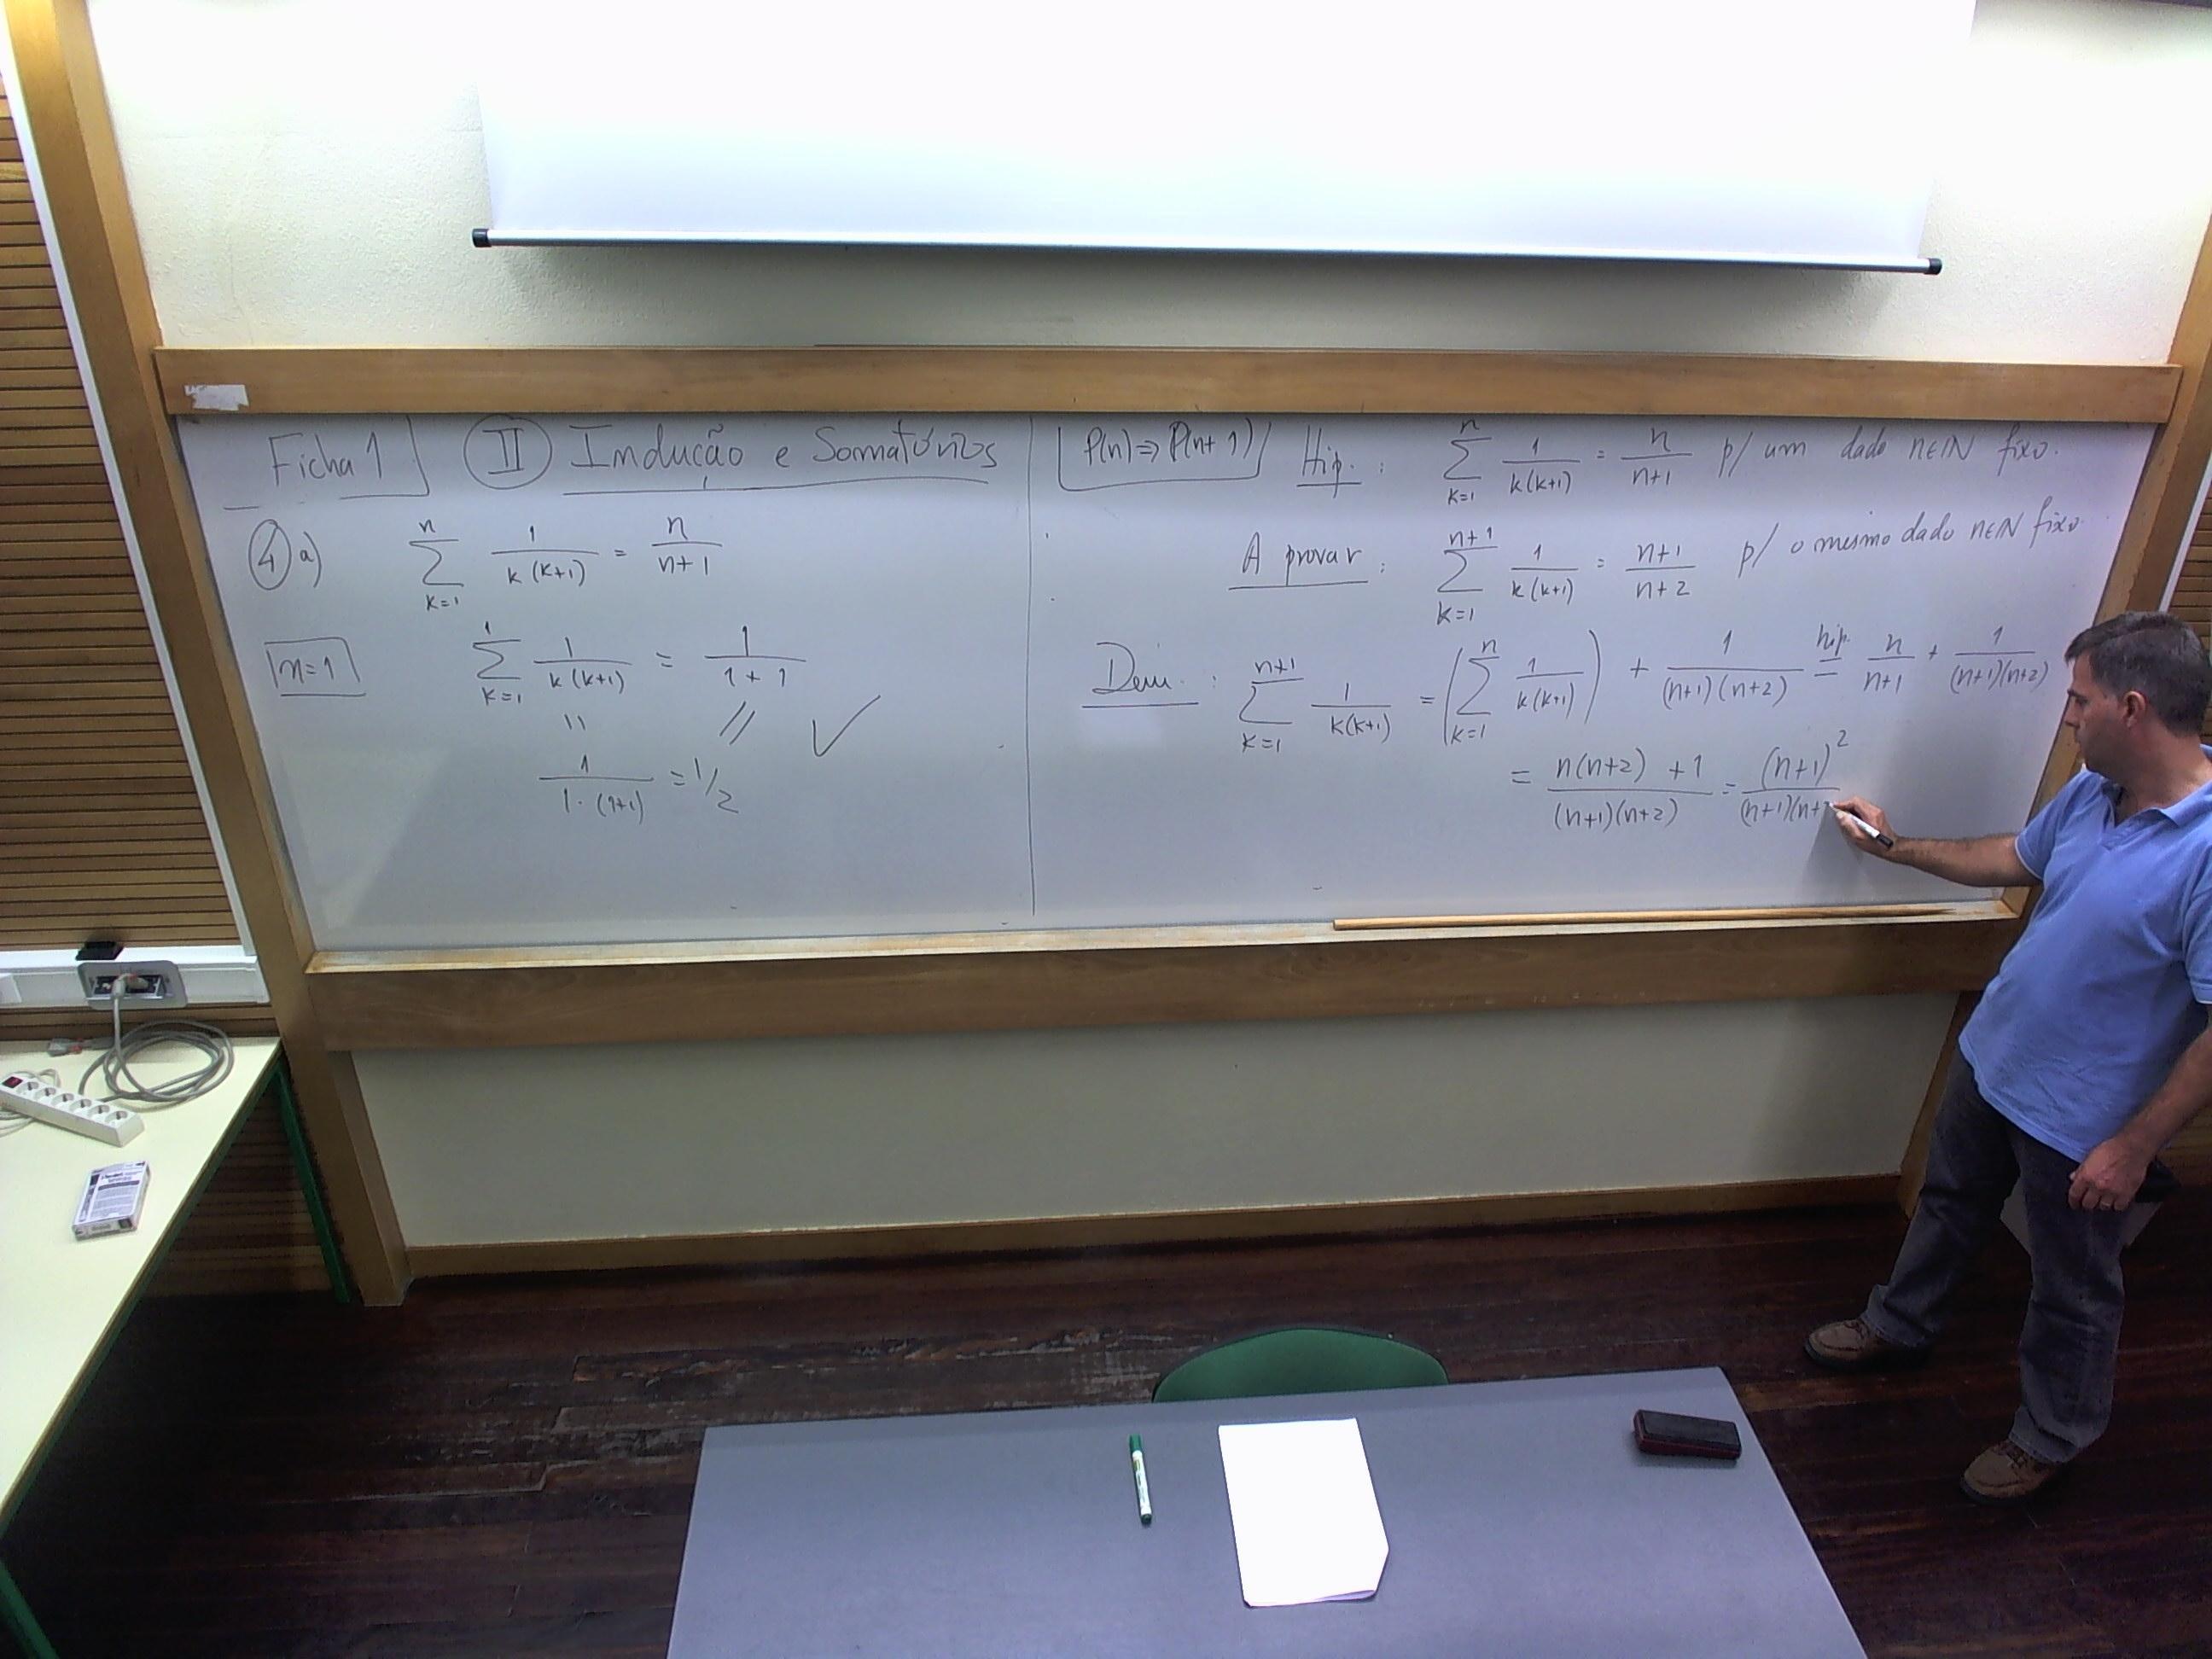 Ficha 1 II Indução e Somatórios
4 a) \sum_{k=1}^{n} \frac{1}{k(k+1)} = \frac{n}{n+1}
n=1 \sum_{k=1}^{1} \frac{1}{k(k+1)} = \frac{1}{1+1}
= // ✓
\frac{1}{1·(1+1)} = 1/2
P(n) ⇒ P(n+1) Hip.: \sum_{k=1}^{n} \frac{1}{k(k+1)} = \frac{n}{n+1} p/ um dado n∈ℕ fixo.
A provar: \sum_{k=1}^{n+1} \frac{1}{k(k+1)} = \frac{n+1}{n+2} p/ o mesmo dado n∈ℕ fixo.
Dem.: \sum_{k=1}^{n+1} \frac{1}{k(k+1)} = \left(\sum_{k=1}^{n} \frac{1}{k(k+1)}\right) + \frac{1}{(n+1)(n+2)} \overset{hip.}{=} \frac{n}{n+1} + \frac{1}{(n+1)(n+2)}
= \frac{n(n+2)+1}{(n+1)(n+2)} = \frac{(n+1)^2}{(n+1)(n+